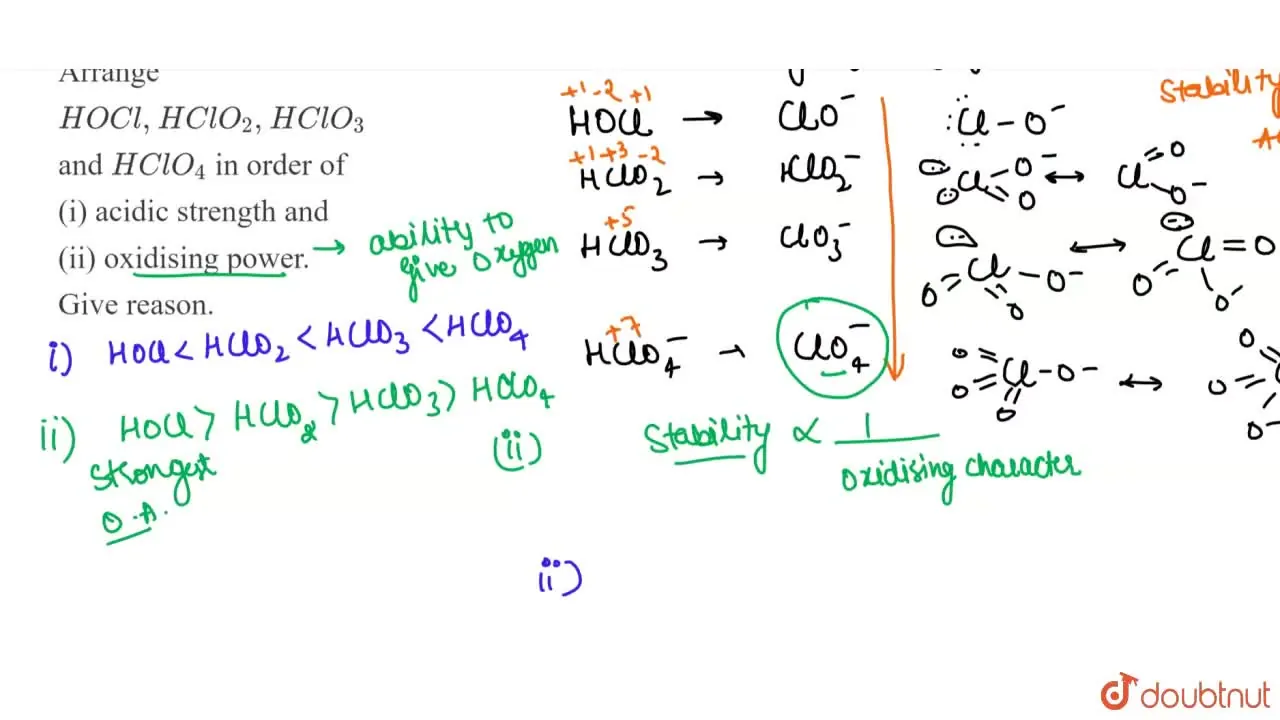 Arrange
HOCl, HClO₂, HClO₃
and HClO₄ in order of
(i) acidic strength and
(ii) oxidising power.
Give reason.
→ ability to
give Oxygen
i) HOCl < HClO₂ < HClO₃ < HClO₄
ii) HOCl > HClO₂ > HClO₃ > HClO₄
Strongest
O.A.
+1 -2 +1
HOCl → ClO⁻
+1 +3 -2
HClO₂ → ClO₂⁻
+5
HClO₃ → ClO₃⁻
+7
HClO₄⁻ → ClO₄⁻
Cl – O⁻
Cl O⁻ O ↔ Cl O O⁻
O Cl O⁻ O ↔ O Cl = O O⁻
O O Cl – O – O ↔ O O O⁻
Stability
(ii) Stability ∝ 1
oxidising character
ii)
doubtnut